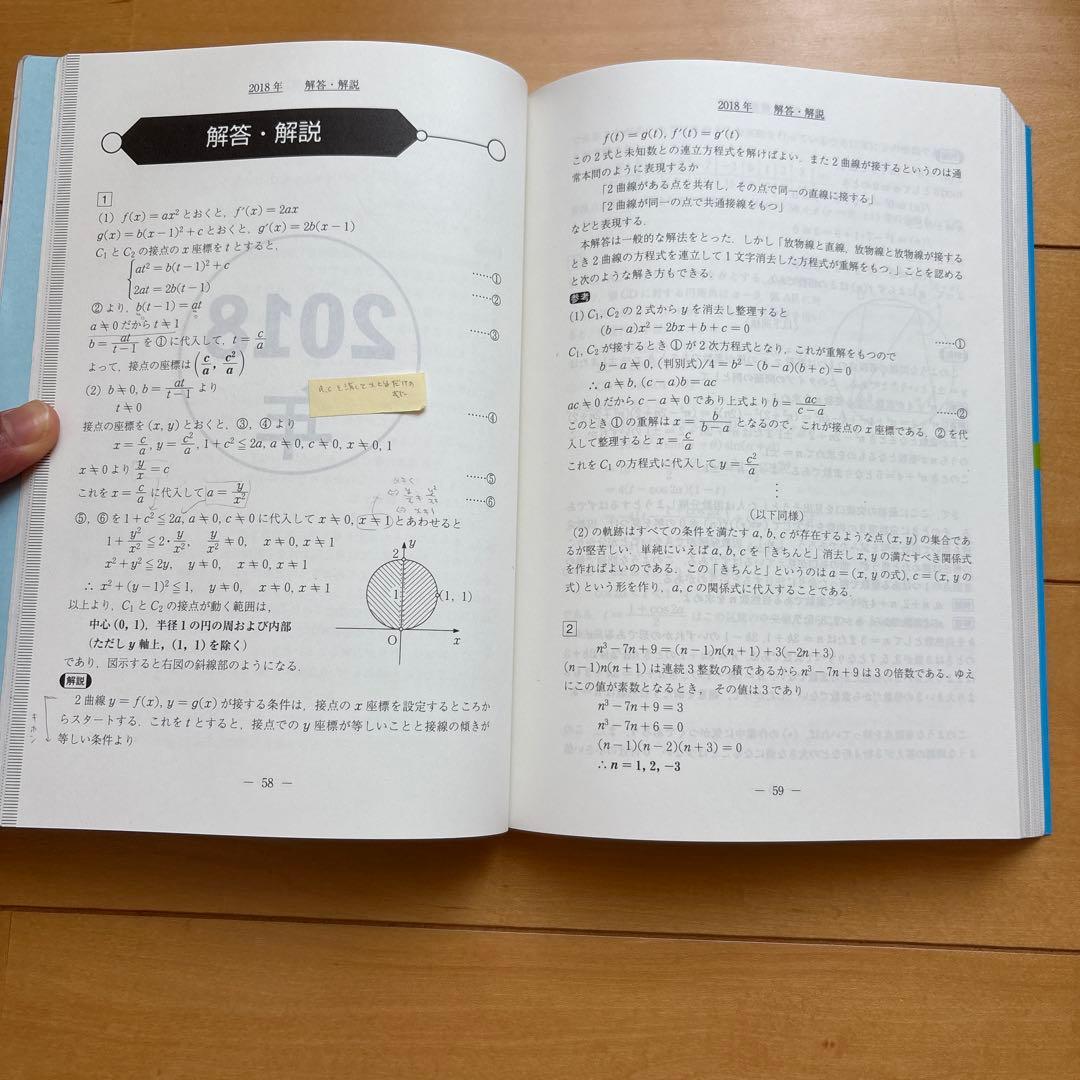 2018年 解答・解説
解答・解説
1
(1) f(x)=ax²とおくと, f′(x)=2ax
g(x)=b(x−1)²+cとおくと, g′(x)=2b(x−1)
C₁とC₂の接点のx座標をtとすると,
at²=b(t−1)²+c ……①
2at=2b(t−1) ……②
②より, b(t−1)=at
a≠0だからt≠1
b=at/(t−1)を①に代入して, t=c/a ……③
よって, 接点の座標は(c/a, c²/a)
(2) b≠0, b=at/(t−1) より
t≠0 ……④
接点の座標を(x, y)とおくと, ③, ④より
x=c/a, y=c²/a, 1+c²≦2a, a≠0, c≠0, x≠0, 1
x≠0より y/x=c ……⑤
これをx=c/aに代入してa=y/x² ……⑥
⑤, ⑥を1+c²≦2a, a≠0, c≠0に代入してx≠0, x≠1とあわせると
1+y²/x²≦2・y/x², y/x²≠0, x≠0, x≠1
x²+y²≦2y, y≠0, x≠0, x≠1
∴ x²+(y−1)²≦1, y≠0, x≠0, x≠1
以上より, C₁とC₂の接点が動く範囲は,
中心(0, 1), 半径1の円の周および内部
(ただしy軸上, (1, 1)を除く)
であり, 図示すると右図の斜線部のようになる.
y
2
1
(1, 1)
O
x
解説
2曲線y=f(x), y=g(x)が接する条件は, 接点のx座標を設定するところか
らスタートする. これをtとすると, 接点でのy座標が等しいことと接線の傾きが
等しい条件より
キホン
― 58 ―
2018年 解答・解説
f(t)=g(t), f′(t)=g′(t)
この2式と未知数との連立方程式を解けばよい. また2曲線が接するというのは通
常本間のように表現するか
「2曲線がある点を共有し, その点で同一の直線に接する」
「2曲線が同一の点で共通接線をもつ」
などと表現する.
本解答は一般的な解法をとった. しかし「放物線と直線, 放物線と放物線が接する
とき2曲線の方程式を連立して1文字消去した方程式が重解をもつ.」ことを認める
と次のような解き方もできる.
参考
(1) C₁, C₂の2式からyを消去し整理すると
(b−a)x²−2bx+b+c=0 ……①
C₁, C₂が接するとき①が2次方程式となり, これが重解をもつので
b−a≠0, (判別式)/4=b²−(b−a)(b+c)=0
∴ a≠b, (c−a)b=ac
ac≠0だからc−a≠0であり上式よりb=ac/(c−a) ……②
このとき①の重解はx=b/(b−a)となるので, これが接点のx座標である. ②を代
入して整理するとx=c/a
これをC₁の方程式に代入してy=c²/a
⋮
(以下同様)
(2)の軌跡はすべての条件を満たすa, b, cが存在するような点(x, y)の集合であ
るが堅苦しい. 単純にいえばa, b, cを「きちんと」消去しx, yの満たすべき関係式
を作ればよいのである. この「きちんと」というのはa=(x, yの式), c=(x, yの
式)という形を作り, a, cの関係式に代入することである.
2
n³−7n+9=(n−1)n(n+1)+3(−2n+3)
(n−1)n(n+1)は連続3整数の積であるからn³−7n+9は3の倍数である. ゆえ
にこの値が素数となるとき, その値は3であり
n³−7n+9=3
n³−7n+6=0
(n−1)(n−2)(n+3)=0
∴ n=1, 2, −3
― 59 ―